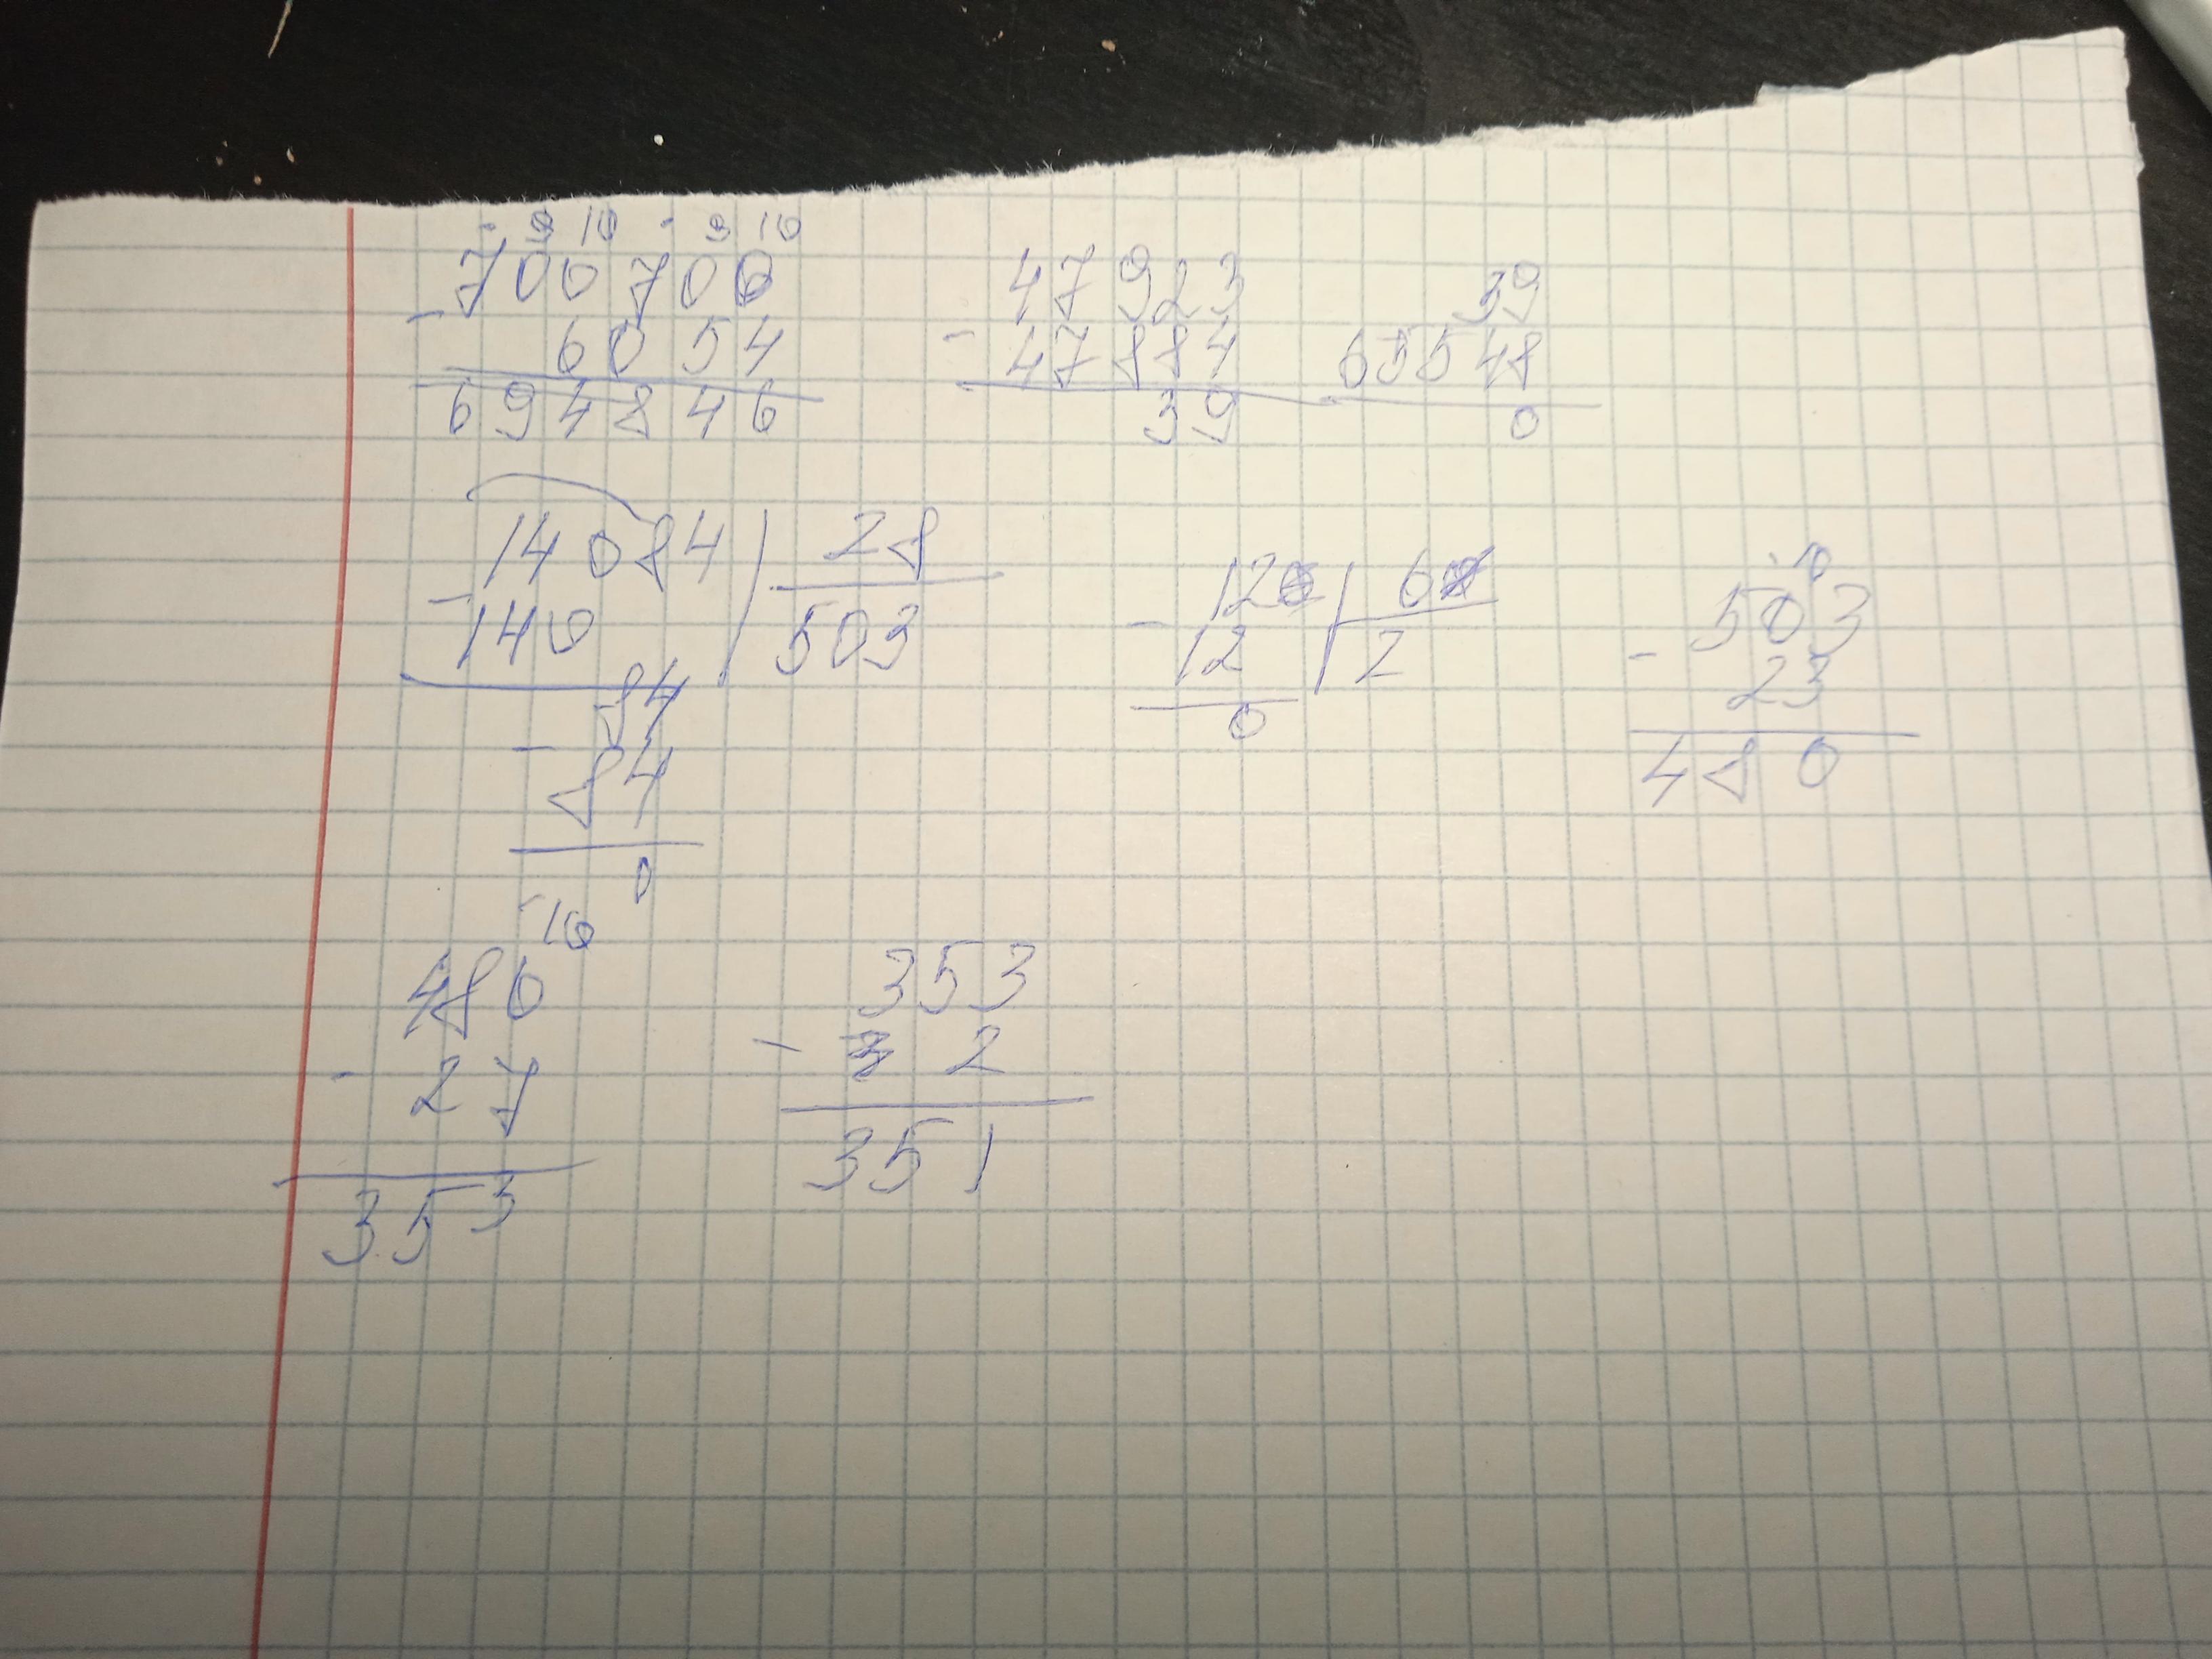 · 9 10 · 9 10
700700 47923 39
- 6054 - 47884 65548
694846 39 0
14084 | 28 120 | 60 · 10
- 140 503 - 12 2 503
84 0 - 23
- 84 480
0
· 10
480 353
- 27 - 2
353 351